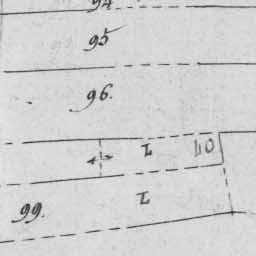 94
95
96.
L
40
L
99.